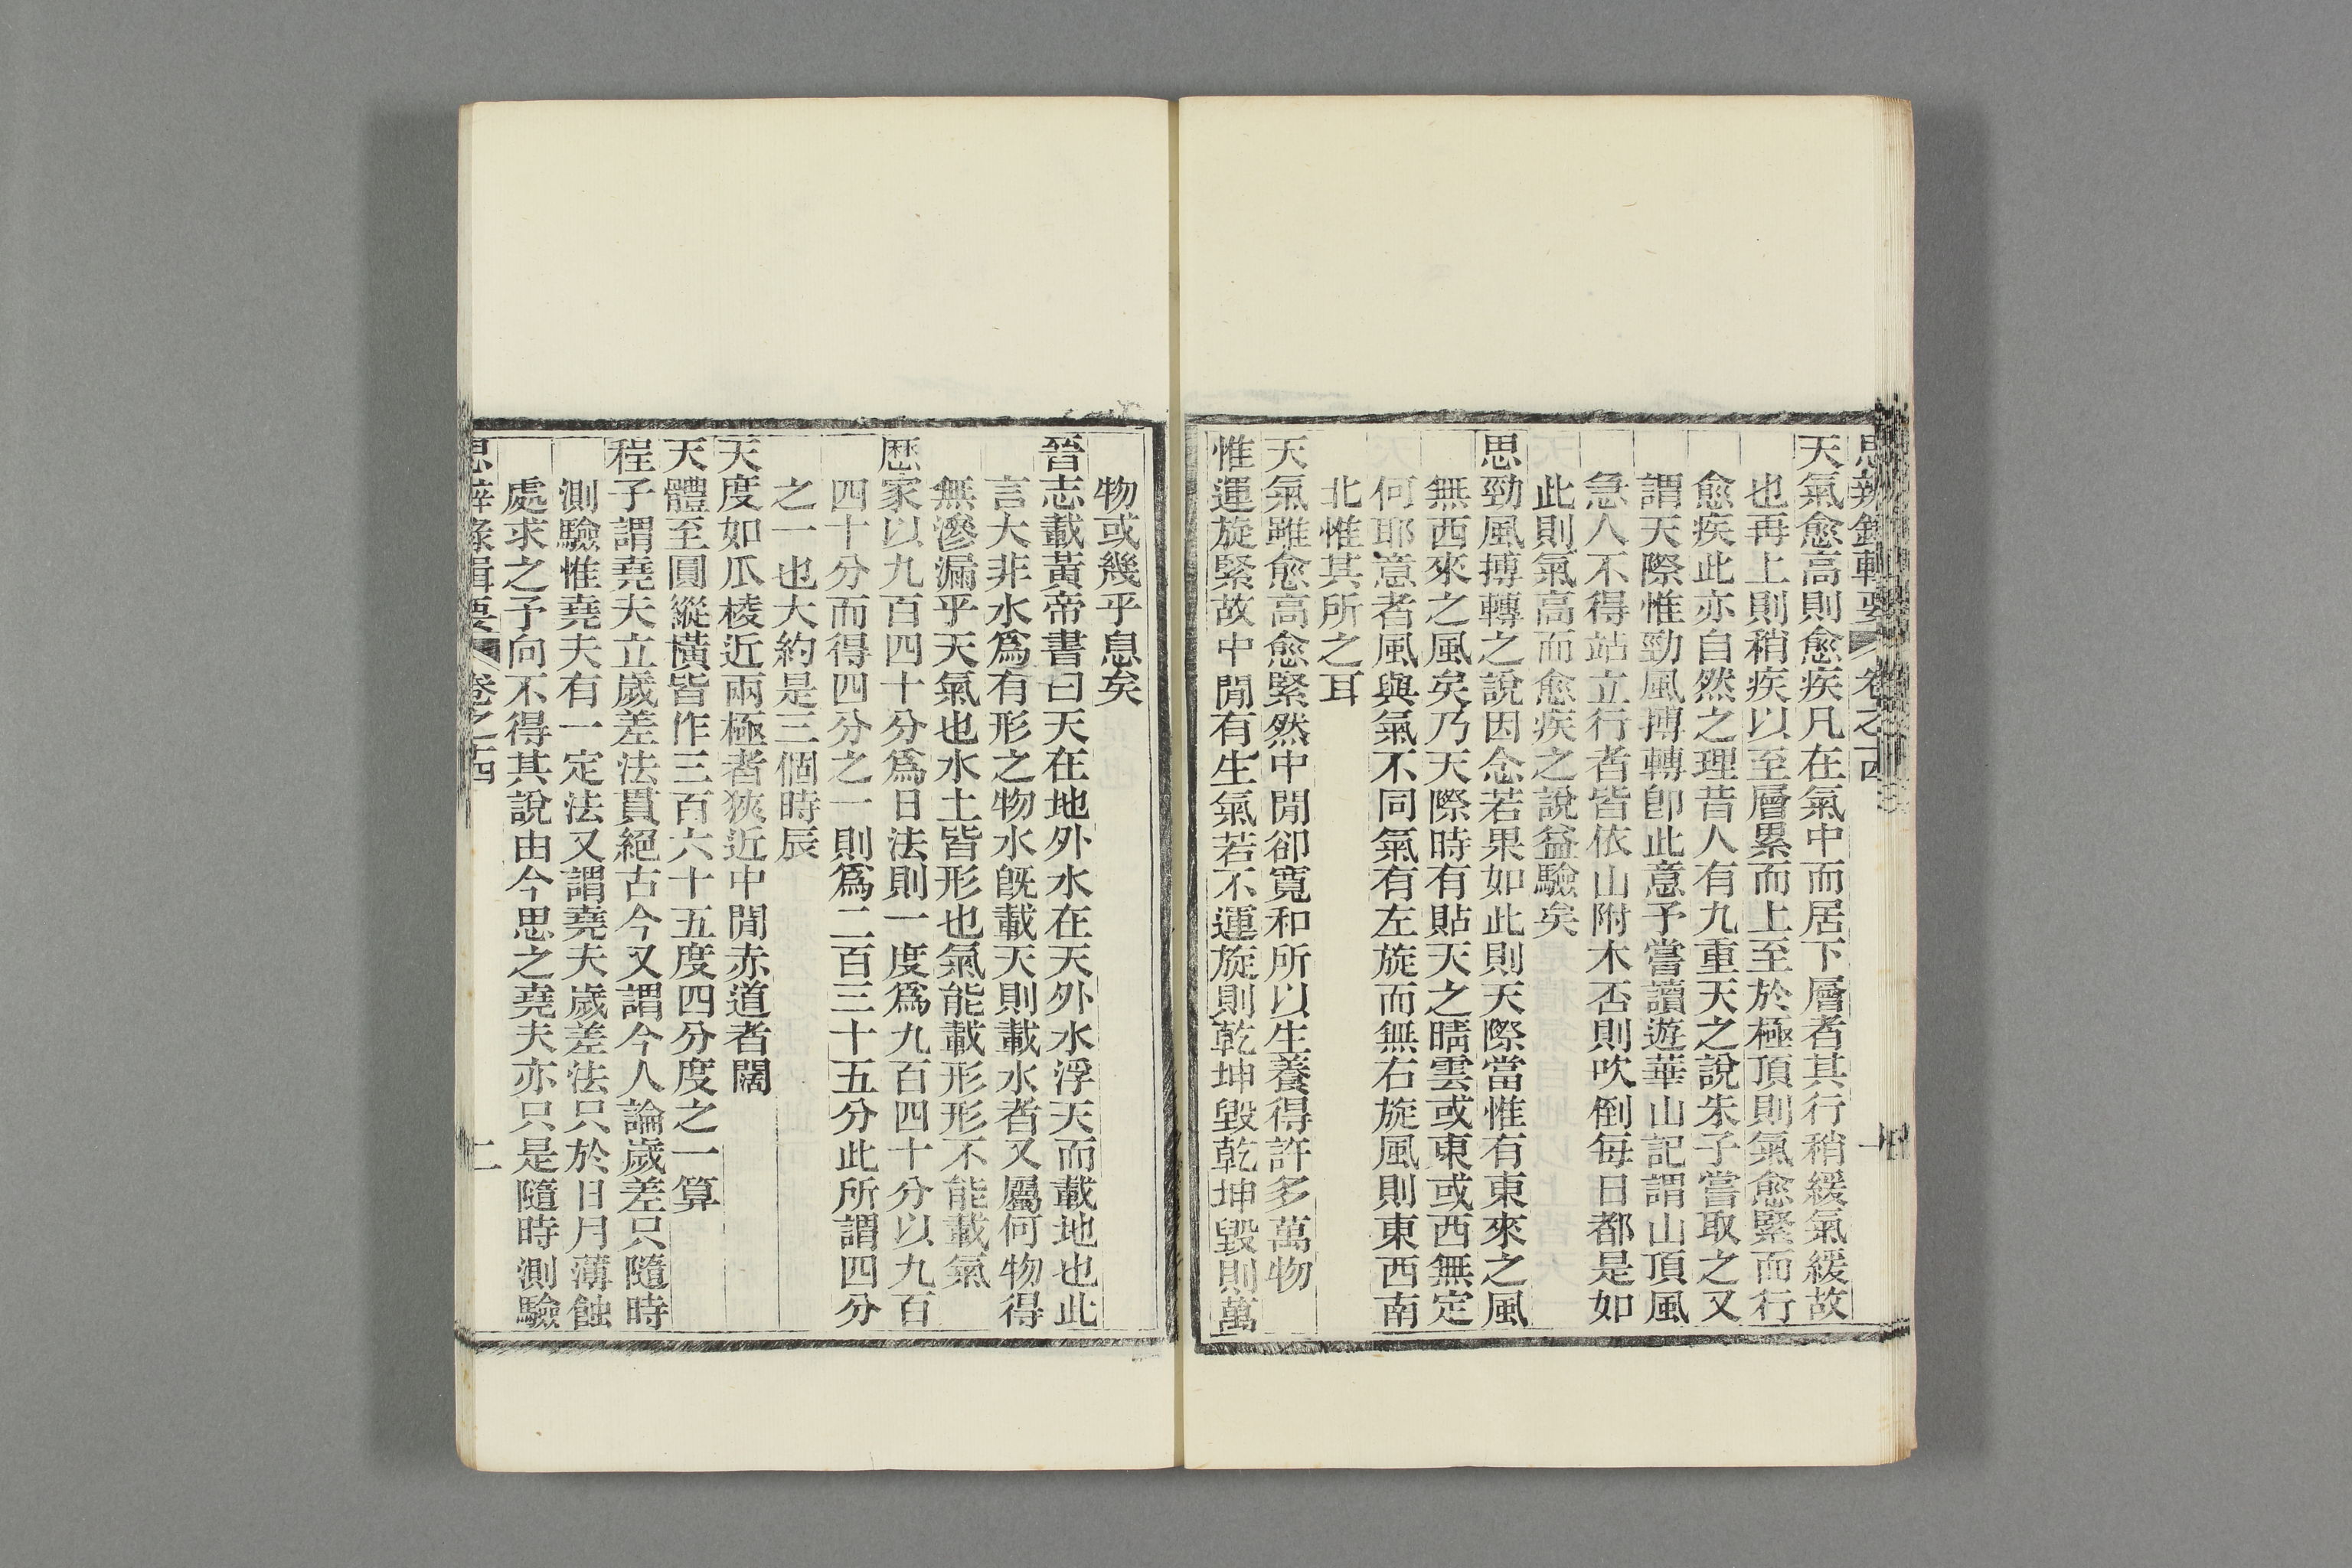 思辨錄輯要 卷之十四 一
天氣愈高則愈疾凡在氣中而居下層者其行稍緩氣緩故
也再上則稍疾以至層累而上至於極頂則氣愈緊而行
愈疾此亦自然之理昔人有九重天之說朱子嘗取之又
謂天際惟勁風搏轉卽此意予嘗讀遊華山記謂山頂風
急人不得站立行者皆依山附木否則吹倒每日都是如
此則氣高而愈疾之說益驗矣
思勁風搏轉之說因念若果如此則天際當惟有東來之風
無西來之風矣乃天際時有貼天之睛雲或東或西無定
何耶意者風與氣不同氣有左旋而無右旋風則東西南
北惟其所之耳
天氣雖愈高愈緊然中閒卻寬和所以生養得許多萬物
惟運旋緊故中閒有生氣若不運旋則乾坤毀乾坤毀則萬
物或幾乎息矣
晉志載黃帝書曰天在地外水在天外水浮天而載地也此
言大非水爲有形之物水旣載天則載水者又屬何物得
無滲漏乎天氣也水土皆形也氣能載形形不能載氣
厯家以九百四十分爲日法則一度爲九百四十分以九百
四十分而得四分之一則爲二百三十五分此所謂四分
之一也大約是三個時辰
天度如瓜棱近兩極者狹近中閒赤道者闊
天體至圓縱橫皆作三百六十五度四分度之一算
程子謂堯夫立歲差法貫絕古今又謂今人論歲差只隨時
測驗惟堯夫有一定法又謂堯夫歲差法只於日月薄蝕
處求之予向不得其說由今思之堯夫亦只是隨時測驗
思辨錄輯要 卷之十四 二